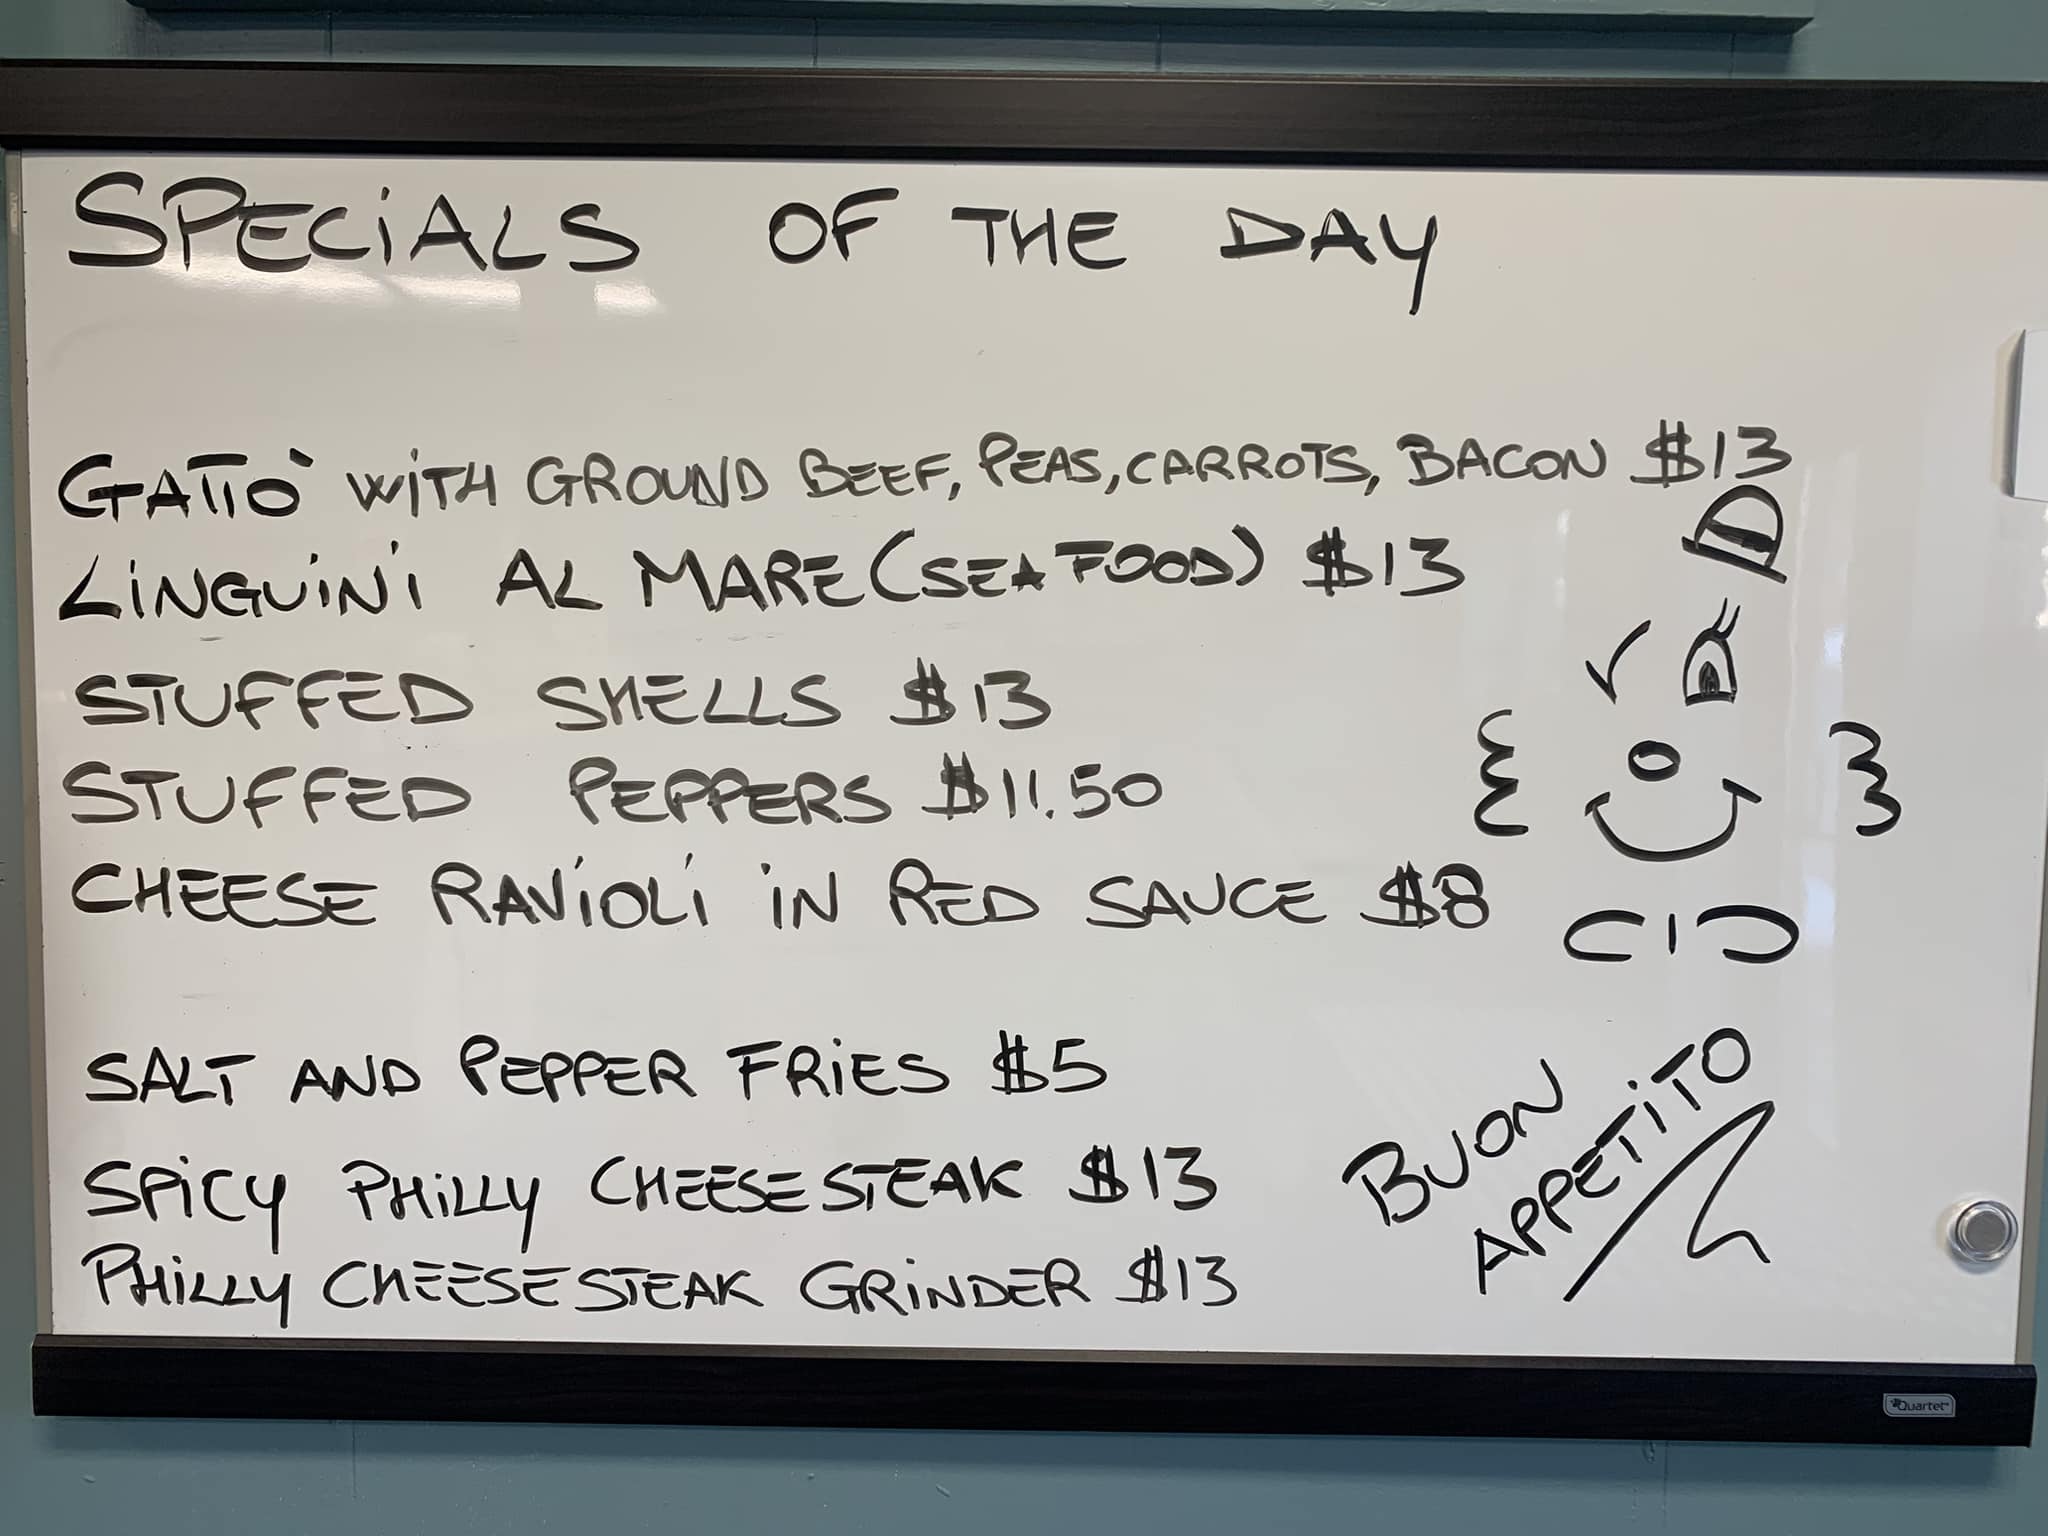 SPECiALS OF THE DAY
GATTO` WiTH GROUND BEEF, PEAS, CARROTS, BACON $13
LiNGUiNi AL MARE (SEAFOOD) $13
STUFFED SHELLS $13
STUFFED PEPPERS $11.50
CHEESE RAViOLi iN RED SAUCE $8
SALT AND PEPPER FRiES $5
SPiCY PHiLLY CHEESESTEAK $13
PHiLLY CHEESESTEAK GRiNDER $13
BUON
APPETiTO
Quartet